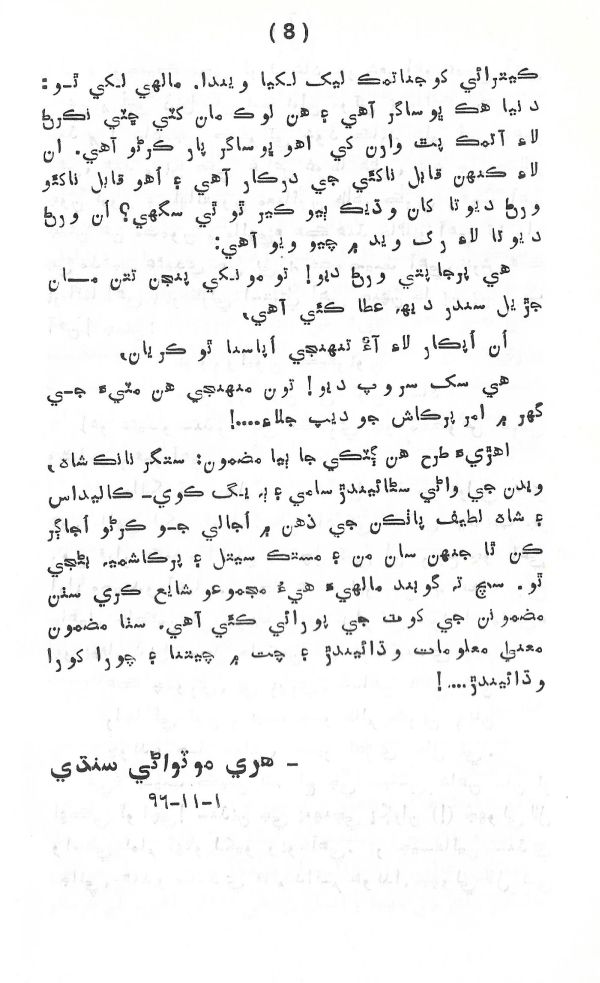 ( 8 )
ڪيترائي کوجناتمڪ ليک لکيا ويندا. مالهي لکي ٿو:
دنيا هڪ ڀوساگر آهي ۽ هن لوڪ مان ڪٽي ڇٽي نڪرڻ
لاءِ آتمڪ پٿ وارن کي اهو ڀوساگر پار ڪرڻو آهي. ان
لاءِ ڪنهن قابل ناکئي جي درڪار آهي ۽ اهو قابل ناکئو
ورڻ ديوتا کان وڌيڪ ٻيو ڪير ٿو ٿي سگهي؟ اُن ورڻ
ديوتا لاءِ رگ ويد ۾ چيو ويو آهي:
هي پرجاپتي ورڻ ديو! تو مونکي پنجن تتن مـــان
جڙيل سندر ديهہ عطا ڪئي آهي،
اُن اُپڪار لاءِ آءٌ تنهنجي اُپاسنا ٿو ڪريان،
هي سک سروپ ديو! تون منهنجي هن مٽيءَ جي
گهر ۾ امر پرڪاش جو ديپ جلاءِ....!
اهڙيءَ طرح هن ڳٽڪي جا ٻيا مضمون: ستگر نانڪ شاهہ،
ويدن جي واڻي سڻائيندڙ سامي ۽ ٻہ يگ ڪوي- ڪاليداس
۽ شاهہ لطيف پاٺڪن جي ذهن ۾ اُجالي جو ڪرڻو اُجاڳر
ڪن ٿا جنهن سان من ۽ مستڪ سيتل ۽ پرڪاشميہ بڻجي
ٿو. سچ تہ گوبند مالهيءَ هيءُ مجموعو شايع ڪري سٺن
مضمونن جي کوٽ جي پورائي ڪئي آهي. سٺا مضمون
معنيٰ معلومات وڌائيندڙ ۽ چت ۾ چيتنا ۽ چورا کورا
وڌائيندڙ....!
- هري موٽواڻي سنڌي
١-١١-٩٦